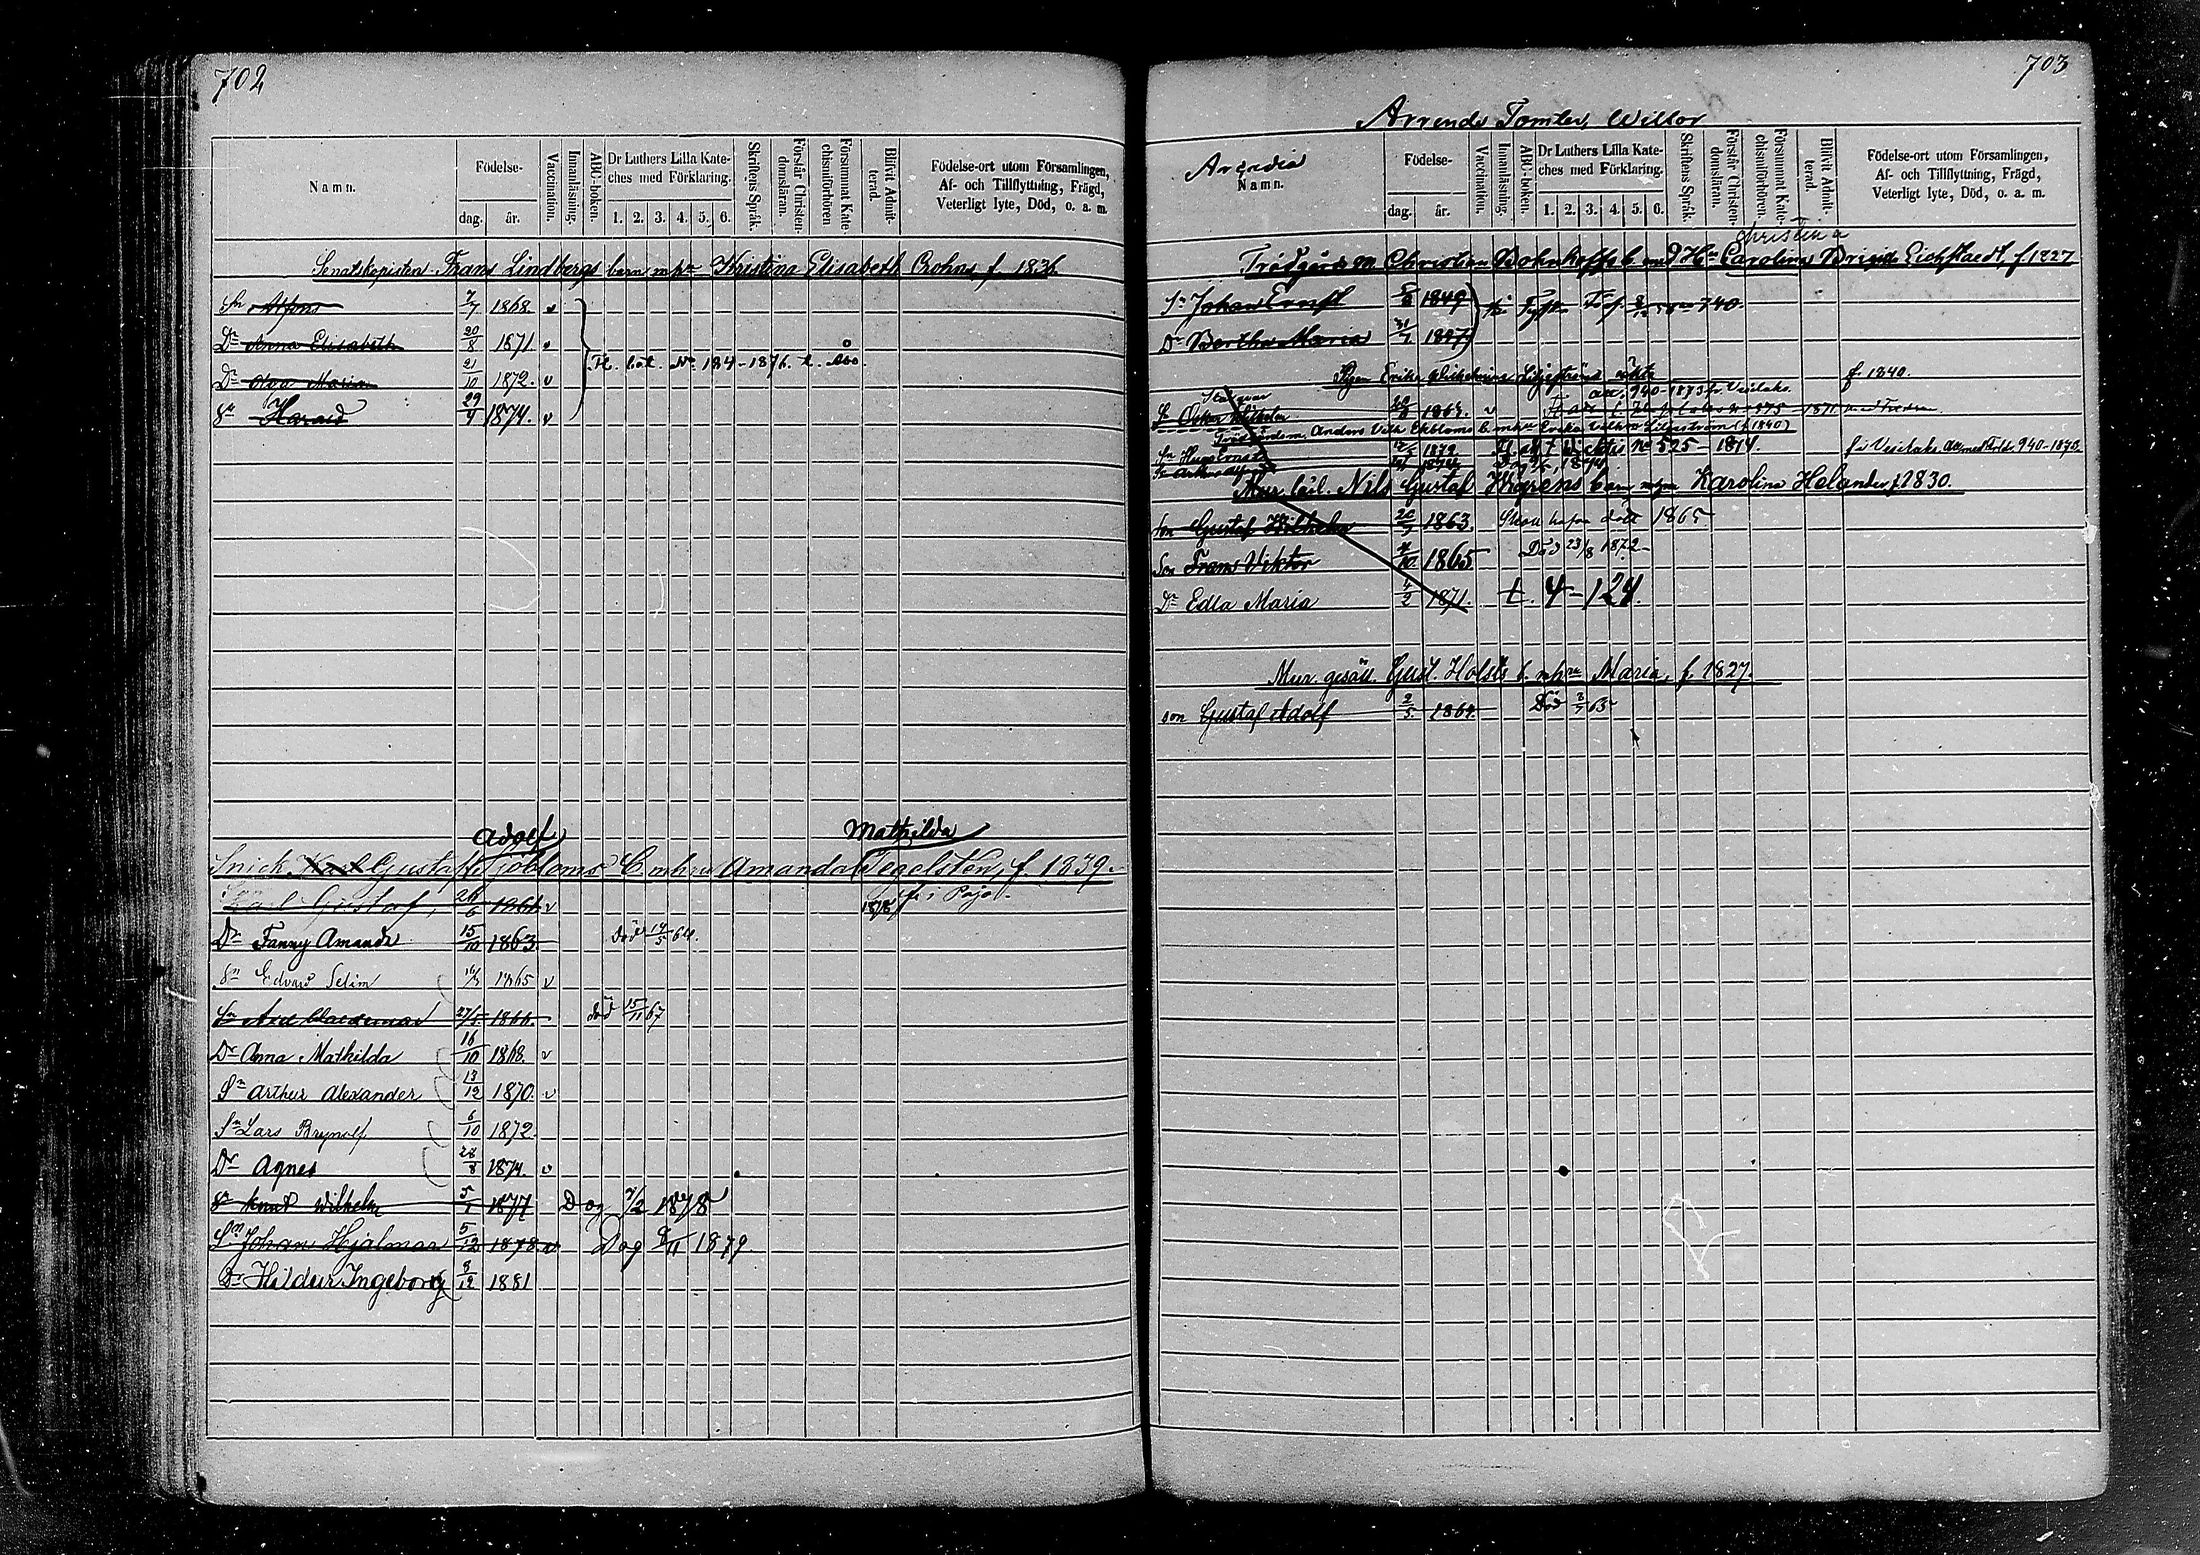 702
Namn.
Födelse-
dag.
år.
Vaccination.
Innanläsning.
ABC-boken.
Dr Luthers Lilla Kate-
ches med Förklaring.
1. 2. 3. 4. 5. 6.
Skriftens Språk.
Förstår Christen-
domsläran.
Försummat Kate-
chismiförhören
Blifvit Admit-
terad.
Födelse-ort utom Församlingen,
Af- och Tillflyttning, Frägd,
Veterligt lyte, Död, o. a. m.
Senatskopisten Frans Lindbergs barn m hu Kristina Elisabeth Crohns f. 1836
Sn Alfons 7/7 1868. v
Dr Anna Elisabeth 20/8 1871. v
Fl. bet. No 184-1876. t. Åbo
Dr Maria 21/10 1872. v
Sn Harald 29/4 1874. v
Adolf Mathilda
Snick. Karl Gustaf Sjöbloms b m hu Amanda Tegelsten, f. 1839
Karl Gustaf, 26/6 1861. v 1878 f. i Pojo.
Dr Fanny Amanda 15/10 1863. död 14/5 64.
Sn Edvard Selim 1865 v
Sn Axel Waldemar 27/5 1866. död 15/11 67
Dr Anna Mathilda 16/10 1868. v
Sn Arthur Alexander 13/12 1870. v
Sn Lars Brynolf 6/10 1872.
Dr Agnes 28/8 1874. v
Sn Knut Wilhelm 5/1 1877 Dog 7/2 1878
Sn Johan Hjalmar 5/12 1878. v Dog 11 1879.
Dr Hildur Ingeborg 9/12 1881
703
Arrende Tomter, Willor
Arcadia
Namn.
Födelse-
dag.
år.
Vaccination.
Innanläsning.
ABC-boken.
Dr Luthers Lilla Kate-
ches med Förklaring.
1. 2. 3. 4. 5. 6.
Skriftens Språk.
Förstår Christen-
domsläran.
Försummat Kate-
chismiförhören.
Blifvit Admit-
terad.
Födelse-ort utom Församlingen,
Af- och Tillflyttning, Frägd,
Veterligt lyte, Död, o. a. m.
Christina
Trädgårdsm Christian Bohnhoffs b m Hu Carolina Brigitta Eichstaedt, f. 1827
Sn Johan Ernst 1849 740.
Dr Bertha Maria 31/1 1847
Pigan Erika Wilhelmina Liljeström oäkta f. 1840.
att. 940-1873 fr. Vesilaks.
Oskar Wilhelm 1867. v
Trädgårdsm. Anders Vilh Ekbloms b. mhu Erika Vilh:a Liljeström (f. 1840)
Sn Hugo Ernst 1872 No 525-1874. f. i Vesilaks. 940-1873.
Mur. gäs. Nils Gustaf Wharens barn m hu Karolina Helander f. 1830.
Son Gustaf Wilhelm 20/7 1863. Skall hafva dött 1865
Son Frans Viktor 4/10 1865 Död 23/8 1872
Dr Edla Maria 4/2 1871. t. 4-124.
Mur. gesäll Gust. Holsts b. mhu Maria, f. 1827.
son Gustaf Adolf 2/5 1864. Död 2/7 65